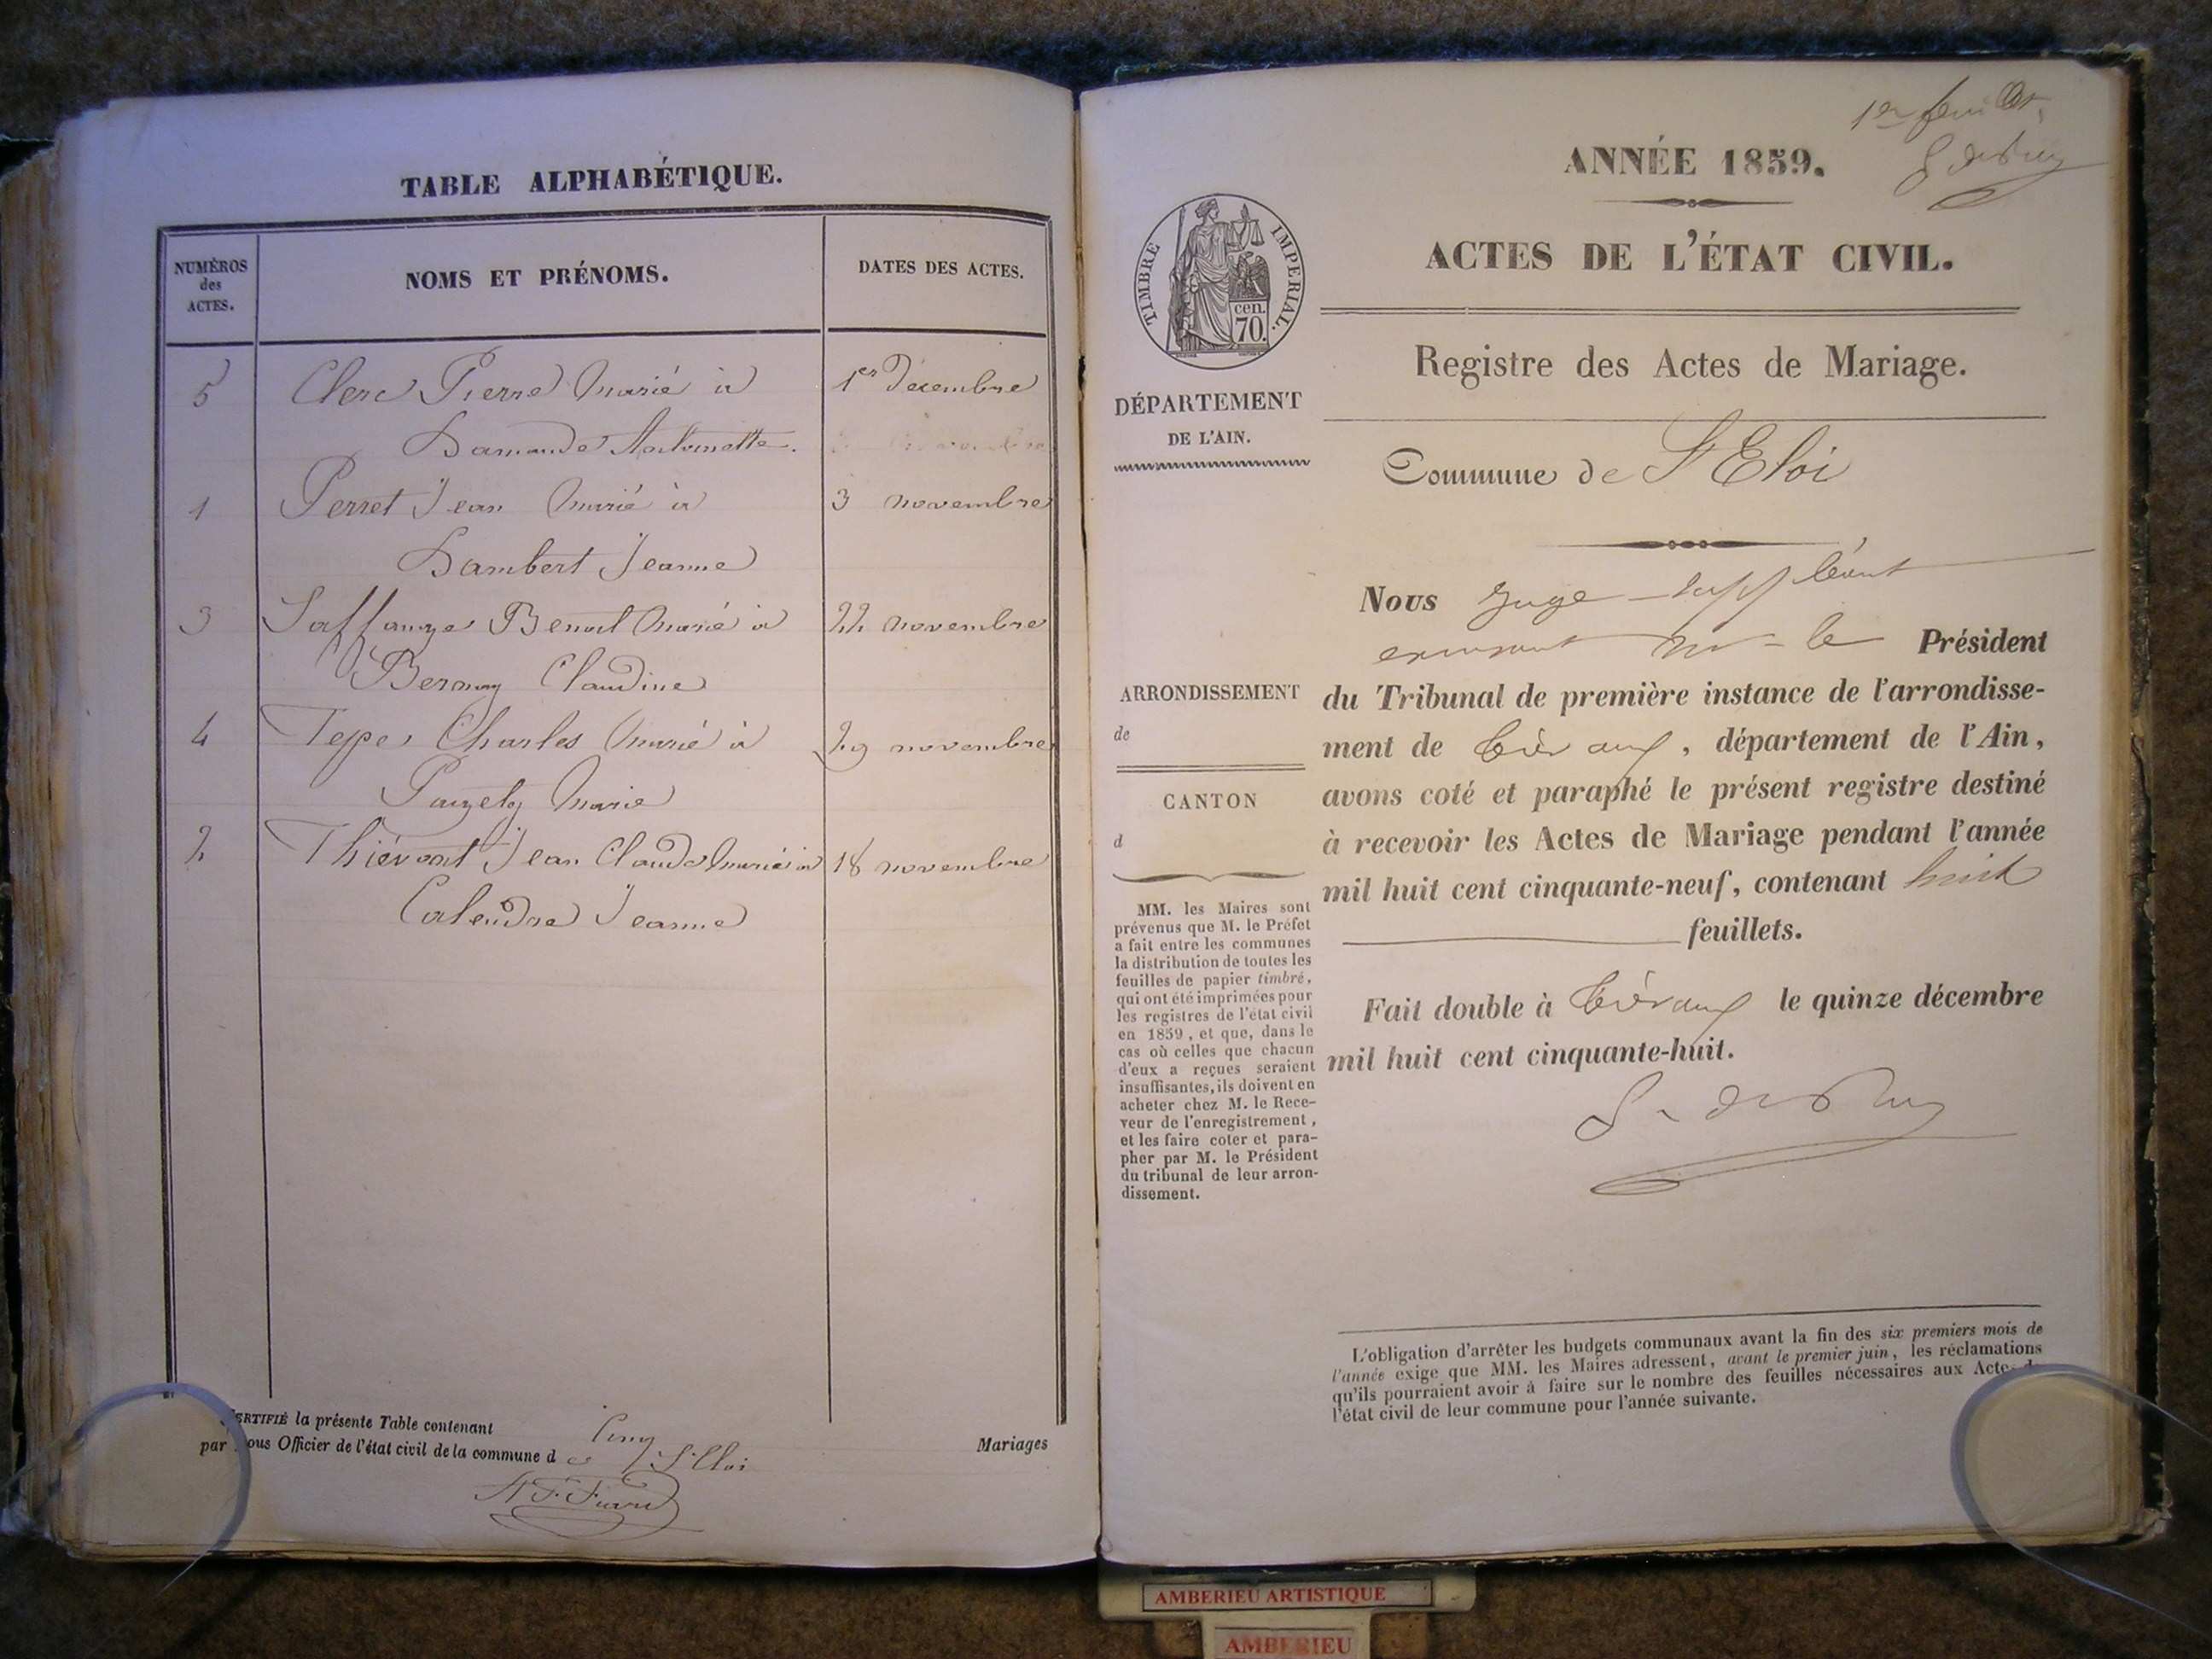 TABLE ALPHABÉTIQUE.
NUMÉROS des ACTES.
NOMS ET PRÉNOMS.
DATES DES ACTES.
5 Clerc Pierre marié à 1er Décembre
Antoinette.
1 Perret Jean marié à 3 novembre
Lambert Jeanne
3 Benoit marié à 22 novembre
Claudine
4 Charles marié à 29 novembre
Marie
2 Jean Claude marié à 18 novembre
Calendre Jeanne
CERTIFIÉ la présente Table contenant Cinq Mariages
par nous Officier de l'état civil de la commune de St Eloi
1er feuillet
ANNÉE 1859.
ACTES DE L'ÉTAT CIVIL.
TIMBRE IMPERIAL.
cen.
70.
Registre des Actes de Mariage.
DÉPARTEMENT
DE L'AIN.
Commune de St Eloi
Nous juge suppléant
mr le Président
ARRONDISSEMENT
de
CANTON
d
du Tribunal de première instance de l'arrondisse-
ment de Trévoux, département de l'Ain,
avons coté et paraphé le présent registre destiné
à recevoir les Actes de Mariage pendant l'année
mil huit cent cinquante-neuf, contenant huit
feuillets.
Fait double à Trévoux le quinze décembre
mil huit cent cinquante-huit.
MM. les Maires sont
prévenus que M. le Préfet
a fait entre les communes
la distribution de toutes les
feuilles de papier timbré,
qui ont été imprimées pour
les registres de l'état civil
en 1859, et que, dans le
cas où celles que chacun
d'eux a reçues seraient
insuffisantes, ils doivent en
acheter chez M. le Rece-
veur de l'enregistrement,
et les faire coter et para-
pher par M. le Président
du tribunal de leur arron-
dissement.
L'obligation d'arrêter les budgets communaux avant la fin des six premiers mois de
l'année exige que MM. les Maires adressent, avant le premier juin, les réclamations
qu'ils pourraient avoir à faire sur le nombre des feuilles nécessaires aux Actes de
l'état civil de leur commune pour l'année suivante.
AMBERIEU ARTISTIQUE
AMBERIEU